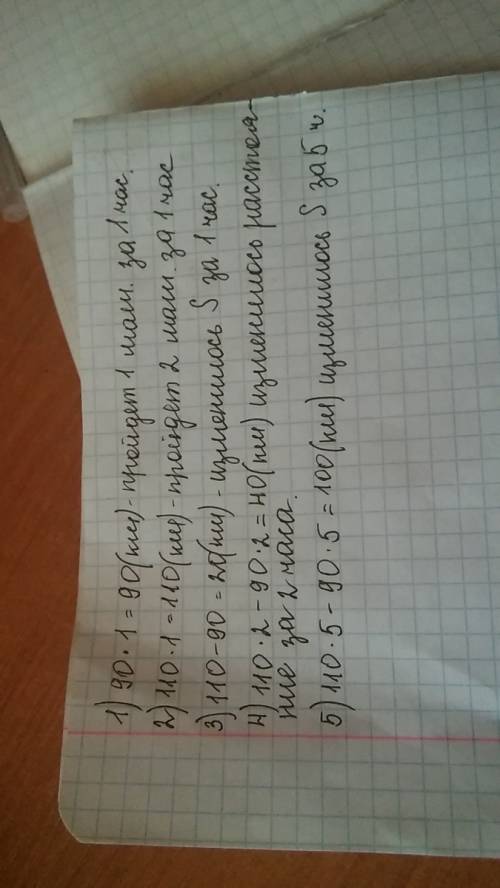 1) 90 · 1 = 90 (км) - пройдет 1 маш. за 1 час.
2) 110 · 1 = 110 (км) - пройдет 2 маш. за 1 час
3) 110 - 90 = 20 (км) - изменилось S за 1 час.
4) 110 · 2 - 90 · 2 = 40 (км) изменилось расстоя-
ние за 2 часа.
5) 110 · 5 - 90 · 5 = 100 (км) изменилось S за 5 ч.